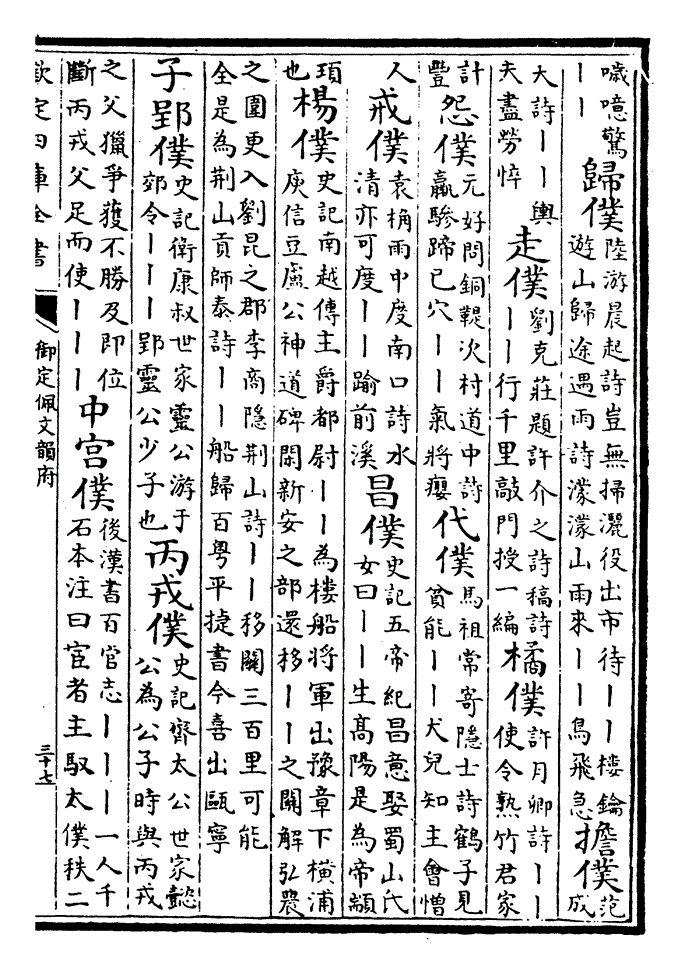 噦噫驚丨丨歸僕陸游晨起詩豈無掃灑役出市待丨丨樓鑰遊山歸途遇雨詩濛濛山雨來丨丨鳥飛急擔僕范成
大詩丨丨輿夫盡勞悴走僕劉克莊題許介之詩稿詩丨丨行千里敲門授一編橘僕許月卿詩丨丨使令熟竹君家
計豐怨僕元好問銅鞮次村道中詩羸驂蹄已穴丨丨氣將癭代僕馬祖常寄隱士詩鶴子見貧能丨丨犬兒知主會憎
人戒僕袁桷雨中度南口詩水清亦可度丨丨踰前溪昌僕史記五帝紀昌意娶蜀山氏女曰丨丨生高陽是為帝顓
頊也楊僕史記南越傳主爵都尉丨丨為樓船將軍出豫章下橫浦庾信豆盧公神道碑閑新安之部還移丨丨之關解弘農
之圍更入劉昆之郡李商隱荆山詩丨丨移關三百里可能全是為荆山貢師泰詩丨丨船歸百粤平捷書今喜出甌寧
子郢僕史記衛康叔世家靈公游于郊令丨丨丨郢靈公少子也丙戎僕史記齊太公世家懿公為公子時與丙戎
之父獵爭獲不勝及即位斷丙戎父足而使丨丨丨中宫僕後漢書百官志丨丨丨一人千石本注曰宦者主馭太僕秩二
欽定四庫全書
御定佩文韻府
三十七